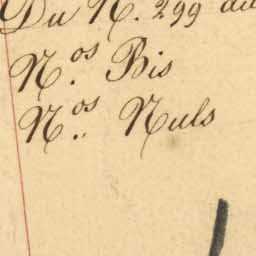 Du N. 299 au
N.os Bis
N.os Nuls